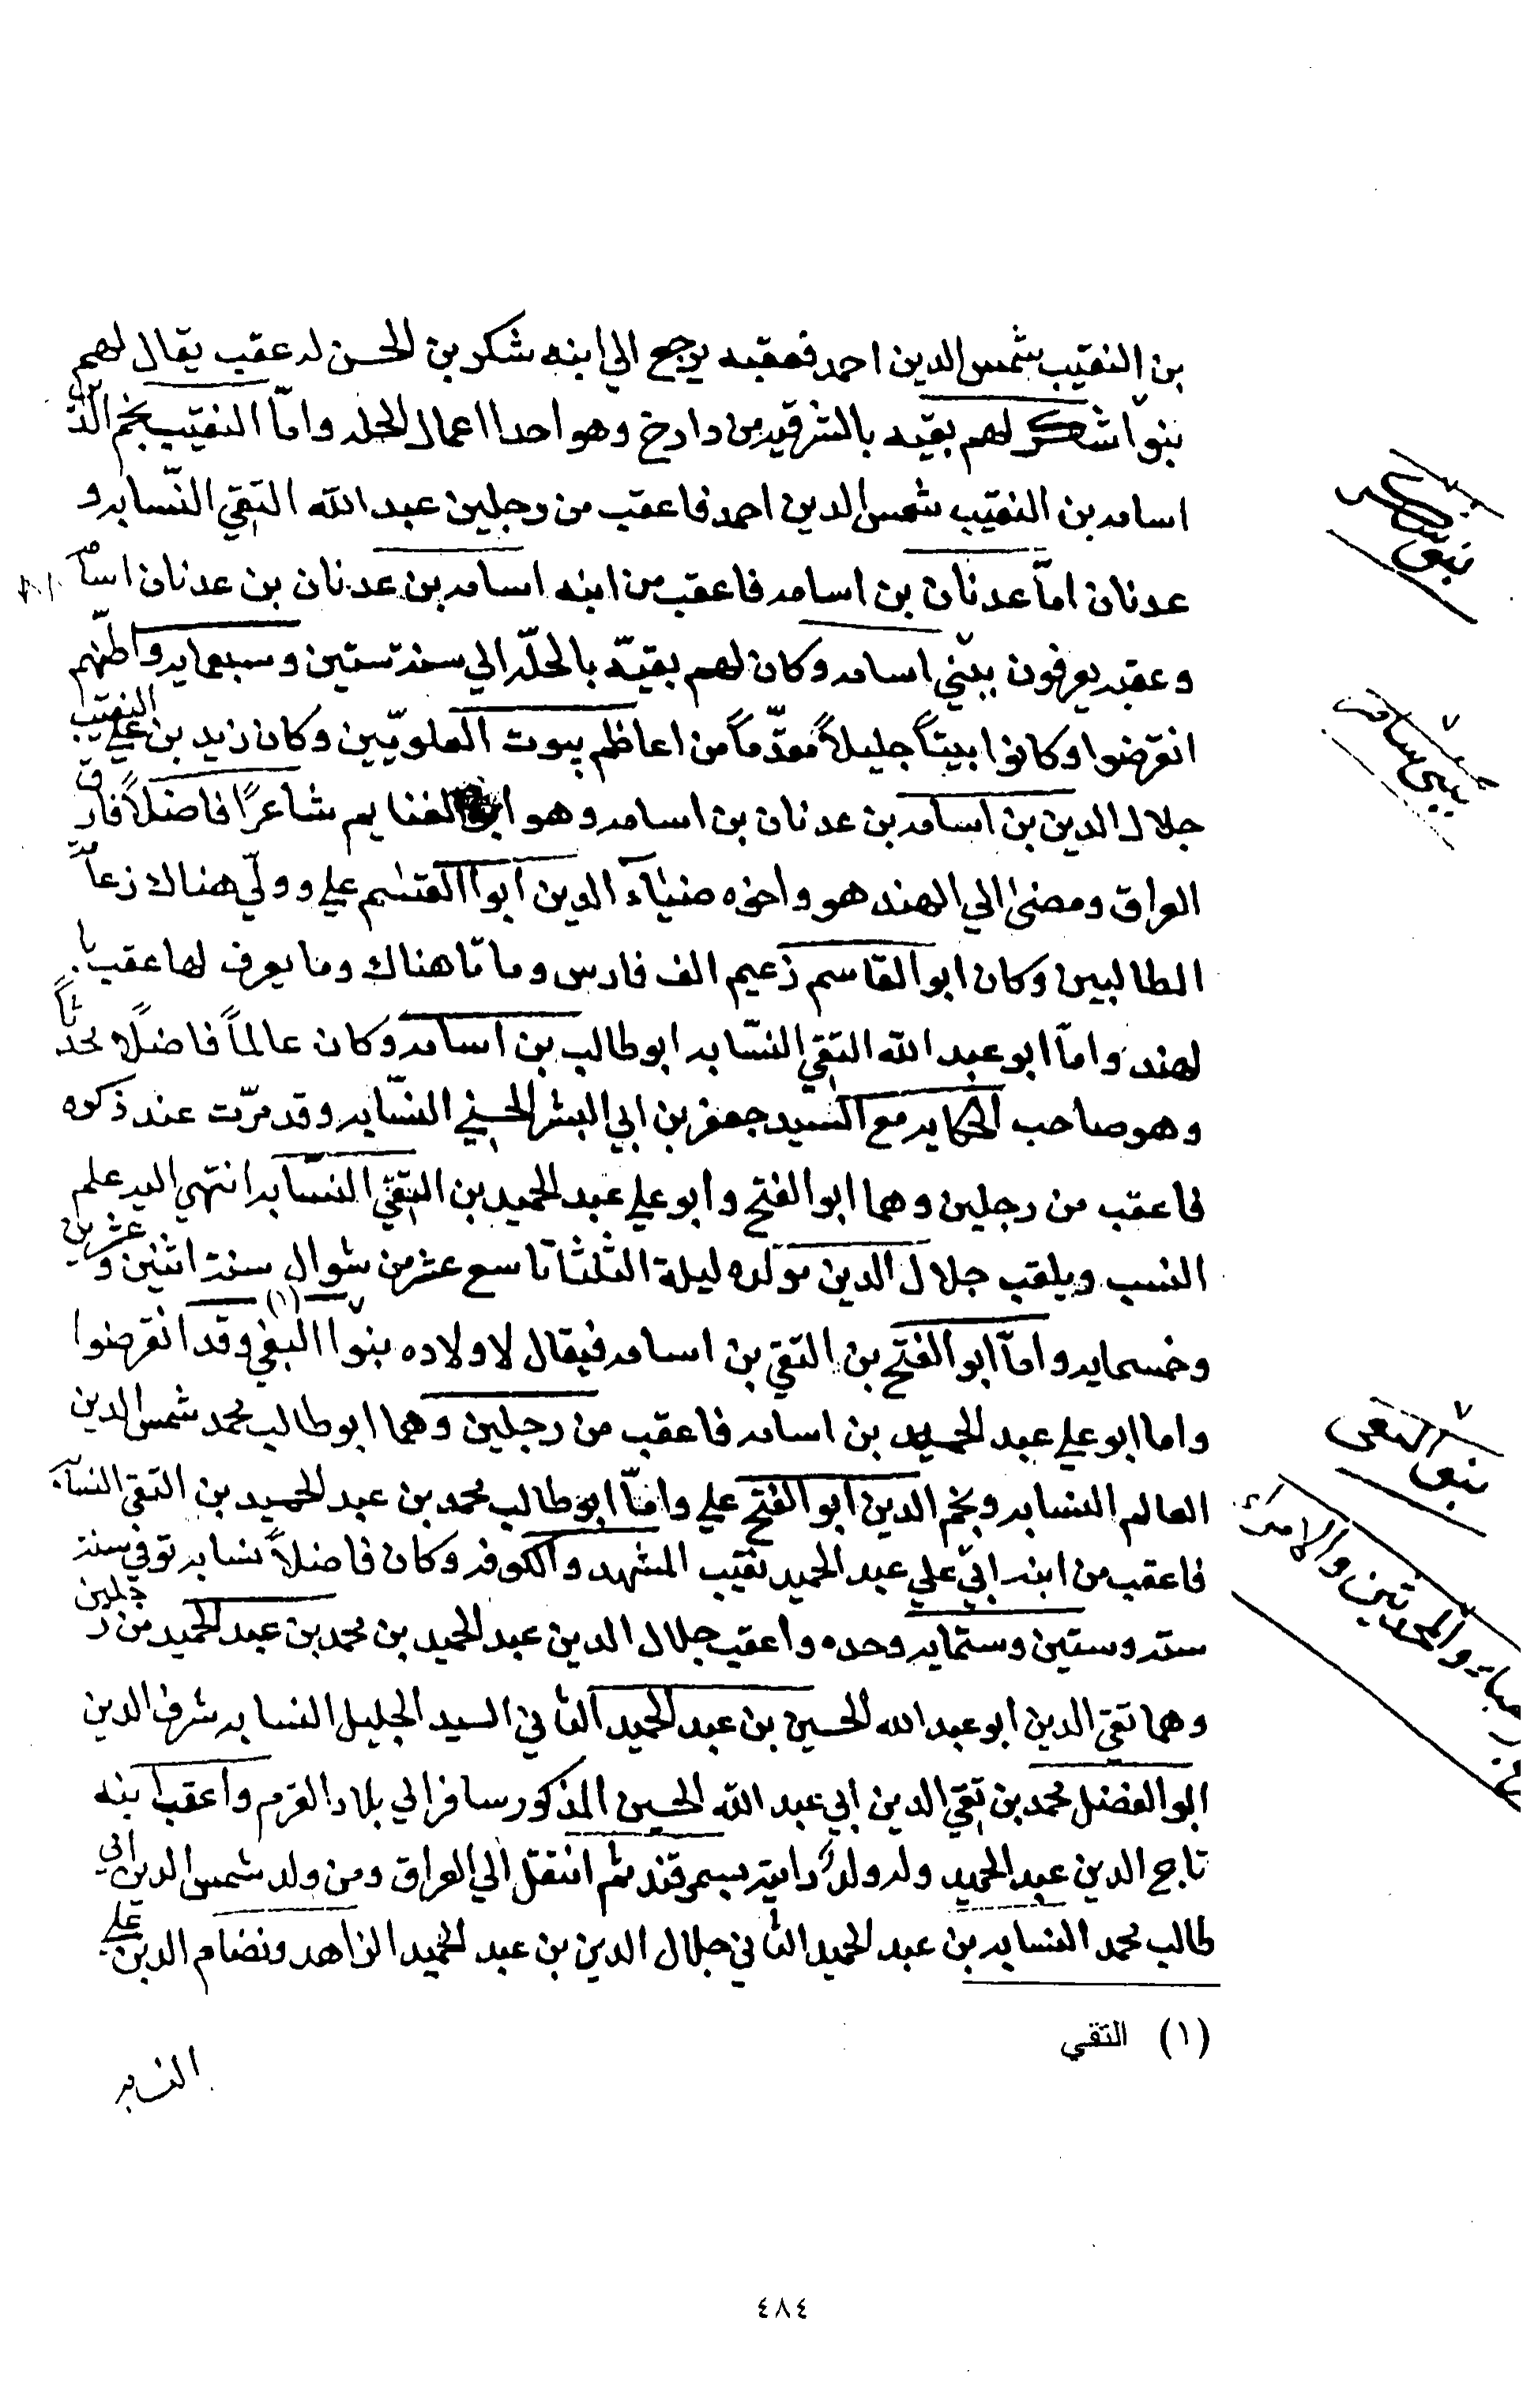 بن النقيب شمس الدين احمد فعقبه يرجع الي ابنه شكر بن الحسن له عقب يقال لهم
بنوا شكر لهم بقيه بالشرقيه من دادخ وهو احدا اعمال الحله وامّا النقيب نجم الدّين
اسامه بن النقيب شمس الدين احمد فاعقب من رجلين عبد الله التقي النّسابه و
عدنان امّا عدنان بن اسامه فاعقب من ابنه اسامه بن عدنان بن عدنان اسامه
وعقبه يعرفون ببني اسامه وكان لهم بقيّه بالحلّه الي سنه ستين وسبعمايه واظنّهم
انقرضوا وكانوا بيتاً جليلاً مقدّماً من اعاظم بيوت العلويّين وكان زيد بن علي النقيب
جلال الدين بن اسامه بن عدنان بن اسامه وهو ابو الغنايم شاعرًا فاضلاً فارق
العراق ومضىٰ الي الهند هو واخوه ضيٰاء الدين ابوا القٰسم علي وولّي هناك زعامة
الطالبين وكان ابو القاسم زعيم الف فارس وماتا هناك وما يعرف لها عقب با
لهند وامّا ابو عبد الله التقي النسّابه ابو طالب بن اسامه وكان عالماً فاضلًا محدّثاً
وهو صاحب الحكايه مع السيد جعفر بن ابي البشر الحسيني النسّابه وقد مرّت عند ذكره
فاعقب من رجلين وهما ابو الفتح وابو علي عبد الحميد بن التقي النسّابه انتهي اليه علم
النسب ويلقب جلال الدين مولده ليلة الثلثا تاسع عشر من شوال سنه اثنين وعشرين
وخسمايه وامّا ابو الفتح بن التقي بن اسامه فيقال لاولاده بنوا البغي (١) وقد انقرضوا
واما ابو علي عبد الحميد بن اسامه فاعقب من رجلين وهما ابو طالب محمد شمس الدين
العالم النسابه ونجم الدين ابو الفتح علي وامّا ابو طالب محمد بن عبد الحميد بن التقي النسابه
فاعقب من ابنه ابي علي عبد الحميد نقيب المشهد والكوفه وكان فاضلاً نسابه توفي سنه
سته وستين وستمايه وحده واعقب جلال الدين عبد الحميد بن محمد بن عبد الحميد من رجلين
وهما تقي الدين ابو عبد الله الحسين بن عبد الحميد الثاني السيد الجليل النسابه شرف الدين
ابو الفضل محمد بن تقي الدين ابي عبد الله الحسين المذكور سافر الي بلاد القرم واعقب ابنه
تاج الدين عبد الحميد وله ولدٌ دايته بسمرقند ثم انتقل الي العراق ومن ولد شمس الدين ابي
طالب محمد النسابه بن عبد الحميد الثاني جلال الدين بن عبد الحميد الزاهد ونضام الدين علي
بنو شكر
بني اسامه
بنو التقي
(١) التقي
النسابه
٤٨٤